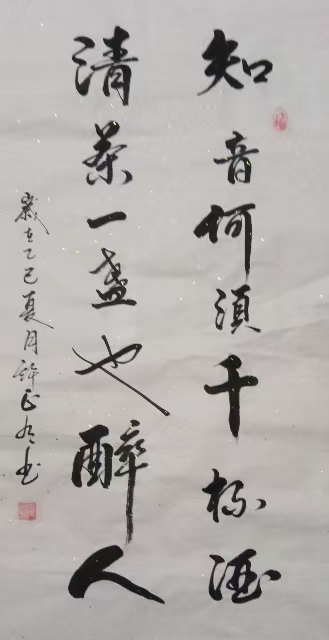 知音何須千杯酒
清茶一盏也醉人
歲在乙巳夏月許正冬书